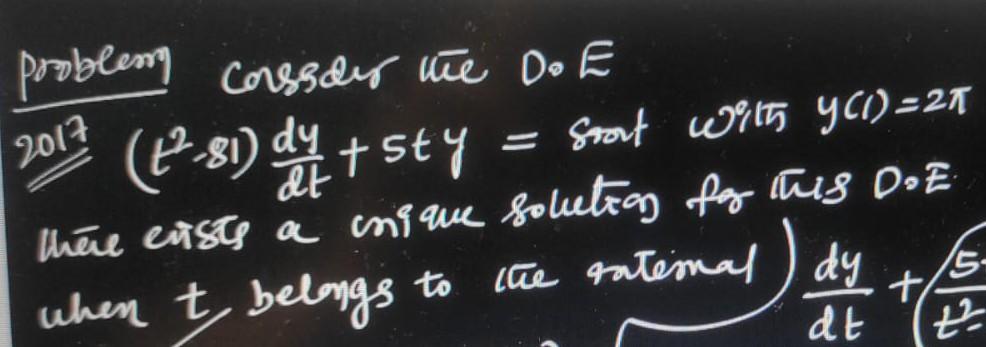 Problem Consider the D.E
2017 (t²-81) dy/dt + 5ty = sint with y(1)=2π
there exists a unique solution for this D.E
when t belongs to the interval) dy/dt + (5
t²-